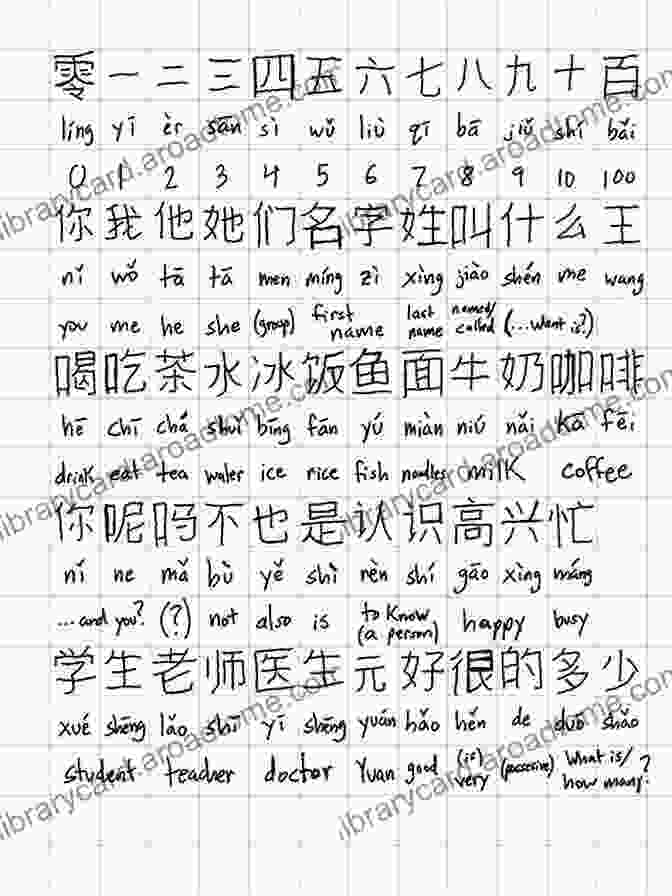 零 一 二 三 四 五 六 七 八 九 十 百
líng yī èr sān sì wǔ liù qī bā jiǔ shí bǎi
0 1 2 3 4 5 6 7 8 9 10 100
你 我 他 她 们 名 字 姓 叫 什 么 王
nǐ wǒ tā tā men míng zì xìng jiào shén me wang
you me he she (group) first name last name named/called (...want is?)
喝 吃 茶 水 冰 饭 鱼 面 牛 奶 咖 啡
hē chī chá shuǐ bīng fān yú miàn niú nǎi kā fēi
drink eat tea water ice rice fish noodles milk coffee
你 呢 吗 不 也 是 认 识 高 兴 忙
nǐ ne mǎ bù yě shì rèn shí gāo xìng máng
...and you? (?) not also is to know (a person) happy busy
学 生 老 师 医 生 元 好 很 的 多 少
xué shēng lǎo shī yī shēng yuán hǎo hěn de duō shǎo
student teacher doctor Yuan good (is) very (possessive) What is/how many?
librarycard.aroadtome.com